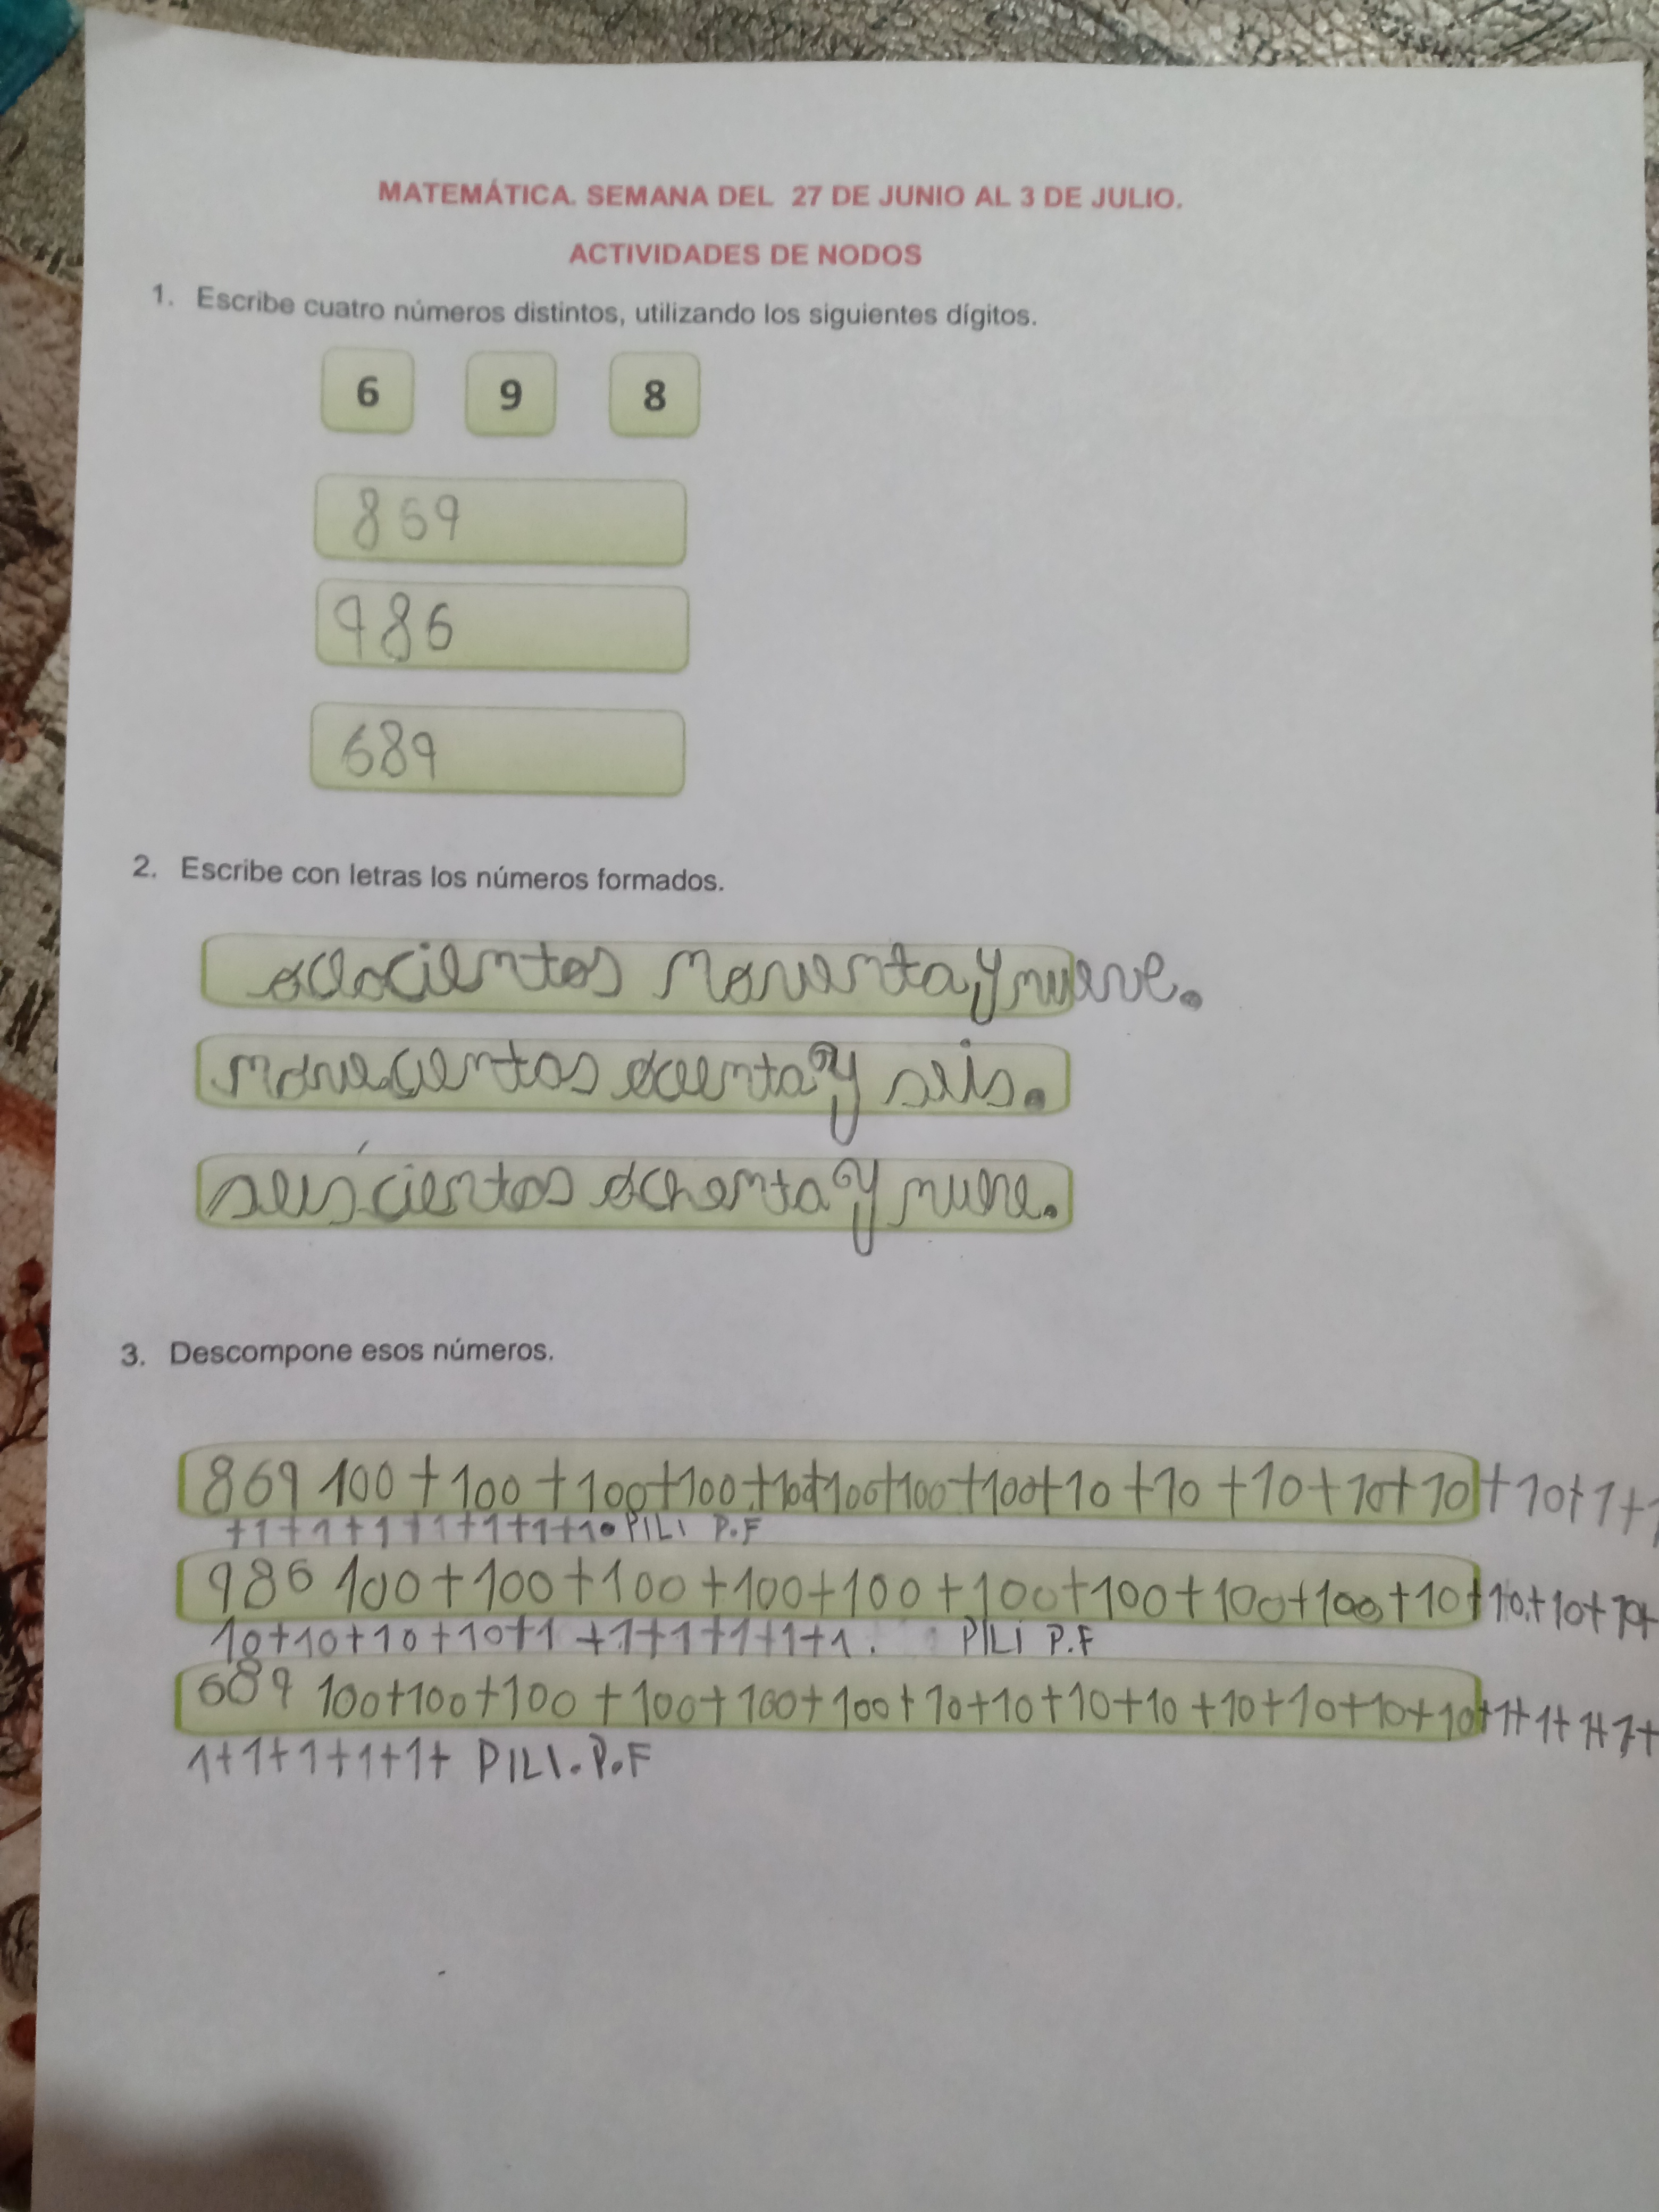 MATEMÁTICA. SEMANA DEL 27 DE JUNIO AL 3 DE JULIO.
ACTIVIDADES DE NODOS
1. Escribe cuatro números distintos, utilizando los siguientes dígitos.
6 9 8
869
986
689
2. Escribe con letras los números formados.
ochocientos noventa y nueve.
novecientos y seis.
seiscientos ochenta y nueve.
3. Descompone esos números.
869 100+100+100+100+100+100+100+100+10+10+10+10+10+10+1+1
+1+1+1+1+1+1+1. PILI P.F
986 100+100+100+100+100+100+100+100+100+10+10+10+10+
10+10+10+10+1+1+1+1+1+1. PILI P.F
689 100+100+100+100+100+100+10+10+10+10+10+10+10+10+1+1+1+1+
1+1+1+1+1+ PILI.P.F